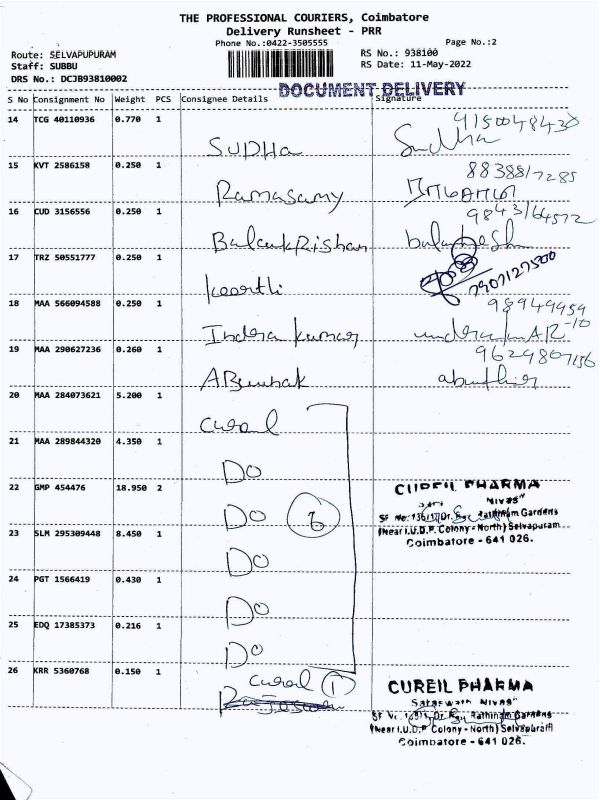 THE PROFESSIONAL COURIERS, Coimbatore
Delivery Runsheet - PRR
Phone No.:0422-3505555
Page No.:2
Route: SELVAPUPURAM
Staff: SUBBU
DRS No.: DCJB93810002
RS No.: 938100
RS Date: 11-May-2022
DOCUMENT DELIVERY
S No Consignment No Weight PCS Consignee Details Signature
14 TCG 40110936 0.770 1
SUDHA Sudha 9150048430
15 KVT 2586158 0.250 1
Ramasamy 8838817285
16 CUD 3156556 0.250 1
BalaukRishan 9843164572
17 TRZ 50551777 0.250 1
keerthi 7907127500
18 MAA 566094588 0.250 1
Indra kumar 98949959-10
19 MAA 290627236 0.260 1
9629807156
20 MAA 284073621 5.200 1
Cureil
21 MAA 289844320 4.350 1
Do
22 GMP 454476 18.950 2
Do 6
CUREIL PHARMA
Nivas"
Rathinam Gardens
(Near I.U.D.P. Colony - North) Selvapuram
Coimbatore - 641 026.
23 SLM 295309448 8.450 1
Do
24 PGT 1566419 0.430 1
Do
25 EDQ 17385373 0.216 1
Do
26 KRR 5360768 0.150 1
Cureil 1
CUREIL PHARMA
Nivas"
Rathinam Gardens
(Near I.U.D.P. Colony - North) Selvapuram
Coimbatore - 641 026.